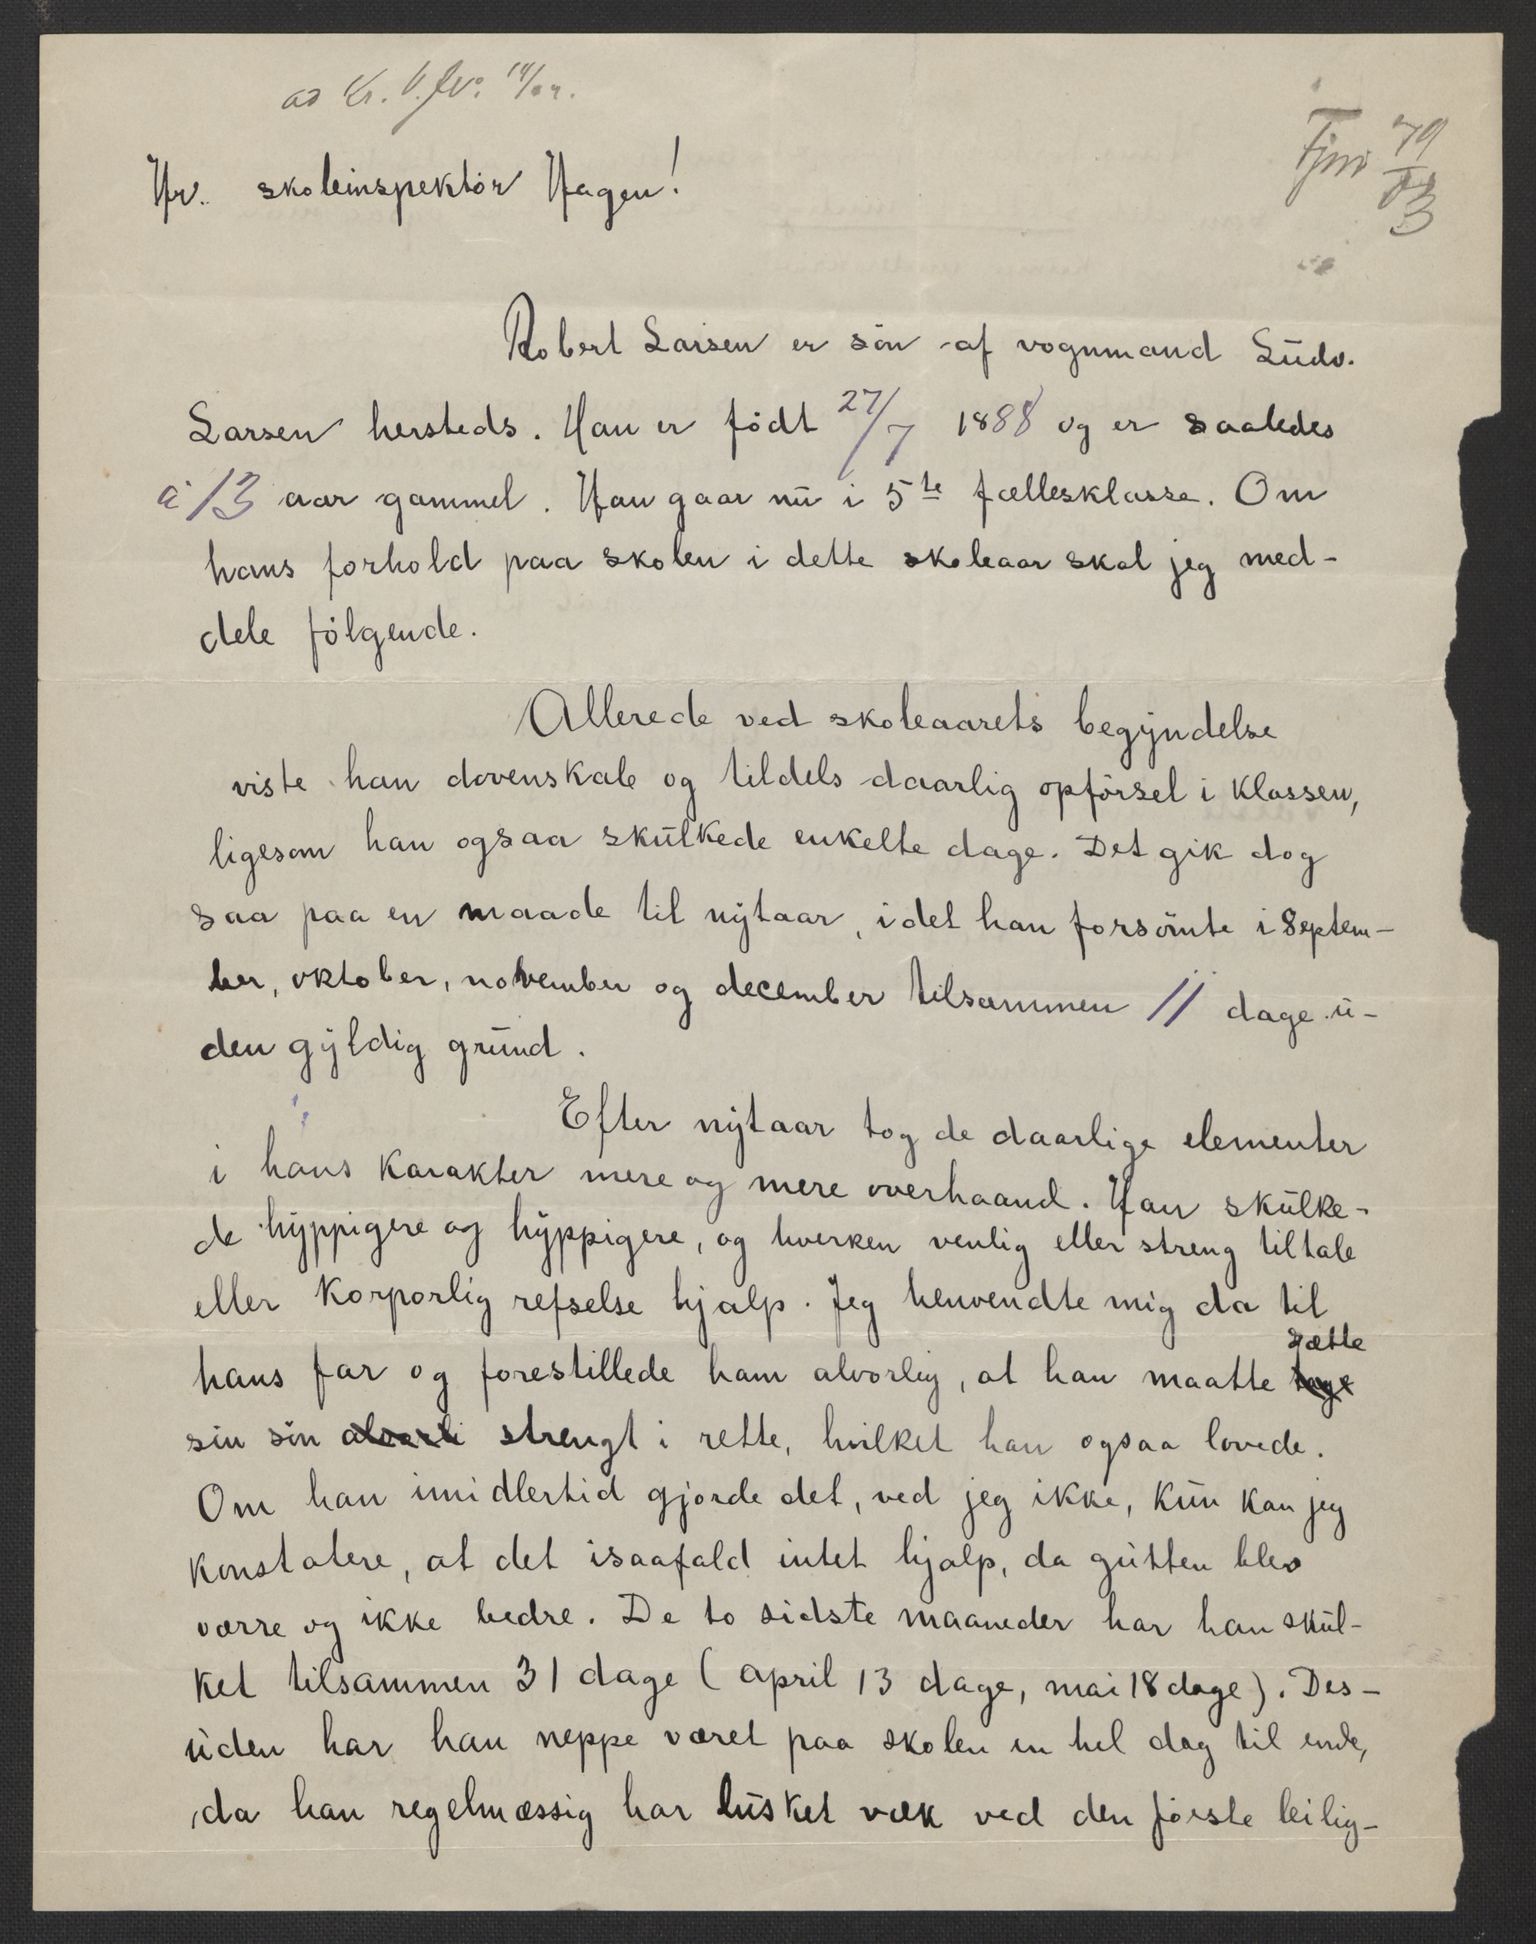 ad Kr. V. Jr.
Hr. skoleinspektör Hagen!
79
3
Robert Larsen er sön af vognmand Ludv.
Larsen hersteds. Han er födt 27/7 1888 og er saaledes
13 aar gammel. Han gaar nu i 5te fællesklasse. Om
hans forhold paa skolen i dette skoleaar skal jeg med-
dele fölgende.
Allerede ved skoleaarets begyndelse
viste han dovenskab og tildels daarlig opförsel i klassen,
ligesom han ogsaa skulkede enkelte dage. Det gik dog
saa paa en maade til nytaar, idet han forsömte i septem-
ber, oktober, november og december tilsammen 11 dage u-
den gyldig grund.
Efter nytaar tog de daarlige elementer
i hans karakter mere og mere overhaand. Han skulke-
de hyppigere og hyppigere, og hverken venlig eller streng tiltale
eller korporlig refselse hjalp. Jeg henvendte mig da til
hans far og forestillede ham alvorlig, at han maatte sætte tage
sin sön alvorli strengt i rette, hvilket han ogsaa lovede.
Om han imidlertid gjorde det, ved jeg ikke, kun kan jeg
konstatere, at det isaafald intet hjalp, da gutten blev
værre og ikke bedre. De to sidste maaneder har han skul-
ket tilsammen 31 dage (april 13 dage, mai 18 dage). Des-
uden har han neppe været paa skolen en hel dag til ende,
da han regelmæssig har lusket væk ved den förste leilig-